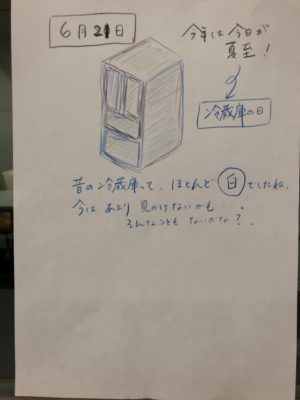 6月21日
今年は今日が
夏至!
冷蔵庫の日
昔の冷蔵庫って、ほとんど白でしたね。
今はあまり見かけないかも・・・。
そんなこともないかな?